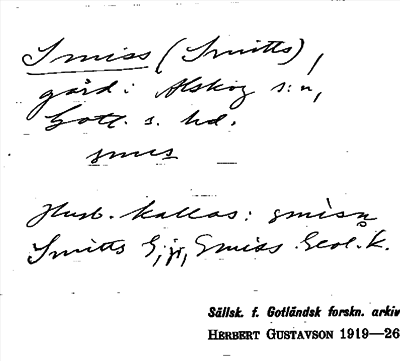 Smiss (Smitts),
gård i Alskog s:n,
Gotl. s. hd.
smis
Husb. kallas: smisn
Smitts G, jr, Smiss Geol. K.
Sällsk. f. Gotländsk forskn. arkiv
HERBERT GUSTAVSON 1919—26